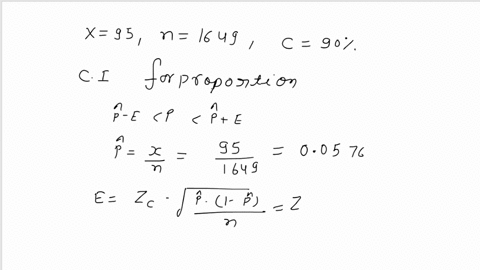 X=95, n=1649, C=90%.
C.I for proportion
p̂-E < P < p̂+E
p̂ = x/n = 95/1649 = 0.0576
E = Zc · √(p̂·(1-p̂)/n) = Z